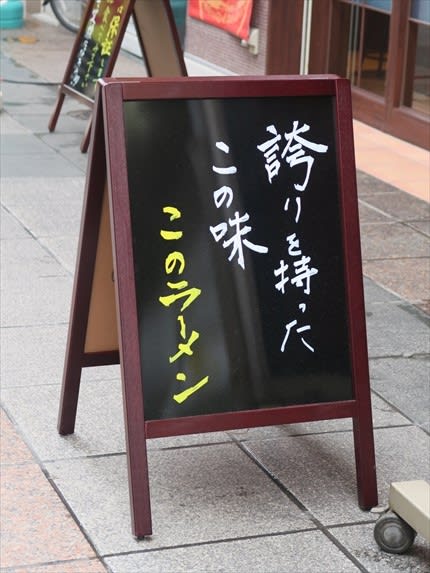 誇りを持った
この味
このラーメン